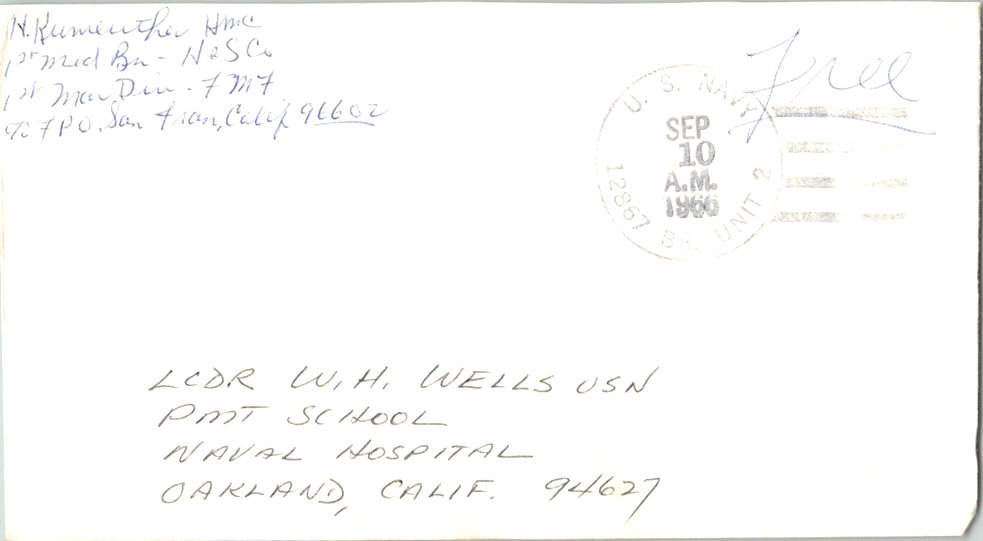 H. Kumenther HMC
1st Med Bn - H&SCo
1st Mar Div - FMF
c/o FPO. San Fran, Calif 96602
Free
U. S. NAVY
SEP
10
A.M.
1966
12867 BR. UNIT 2
LCDR W.H. WELLS USN
PMT SCHOOL
NAVAL HOSPITAL
OAKLAND, CALIF. 94627